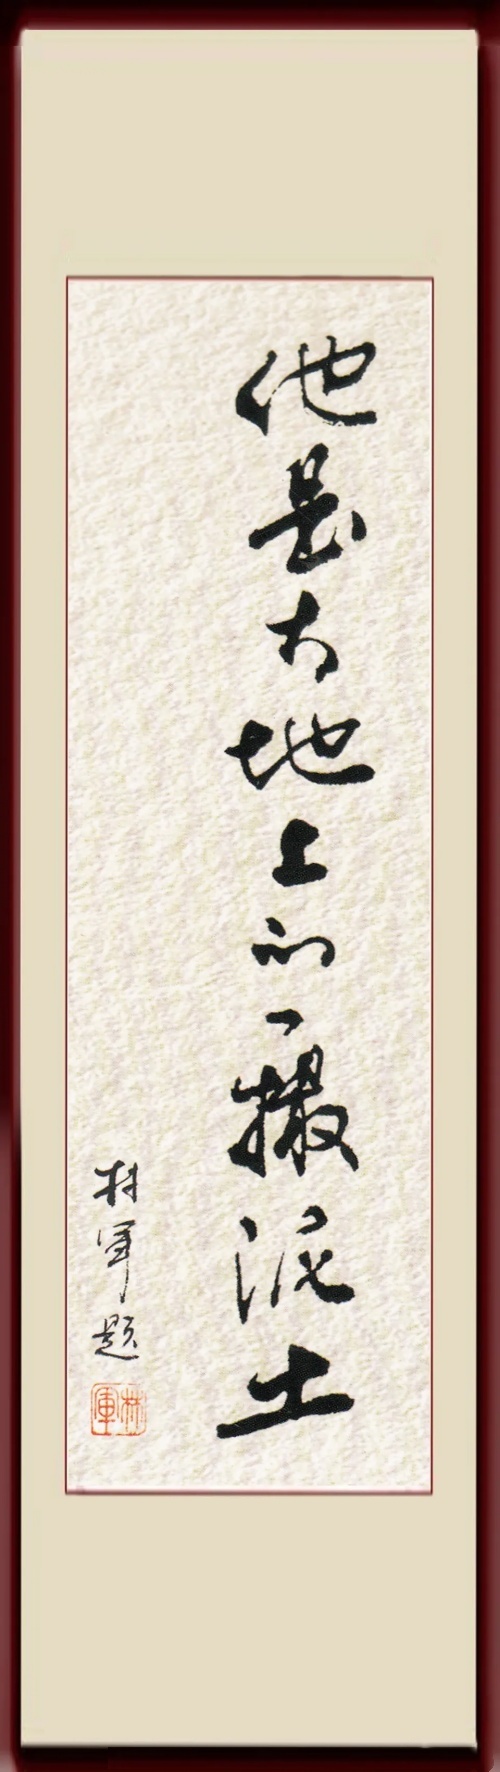 他是大地上的一撮泥土
林军题
林軍